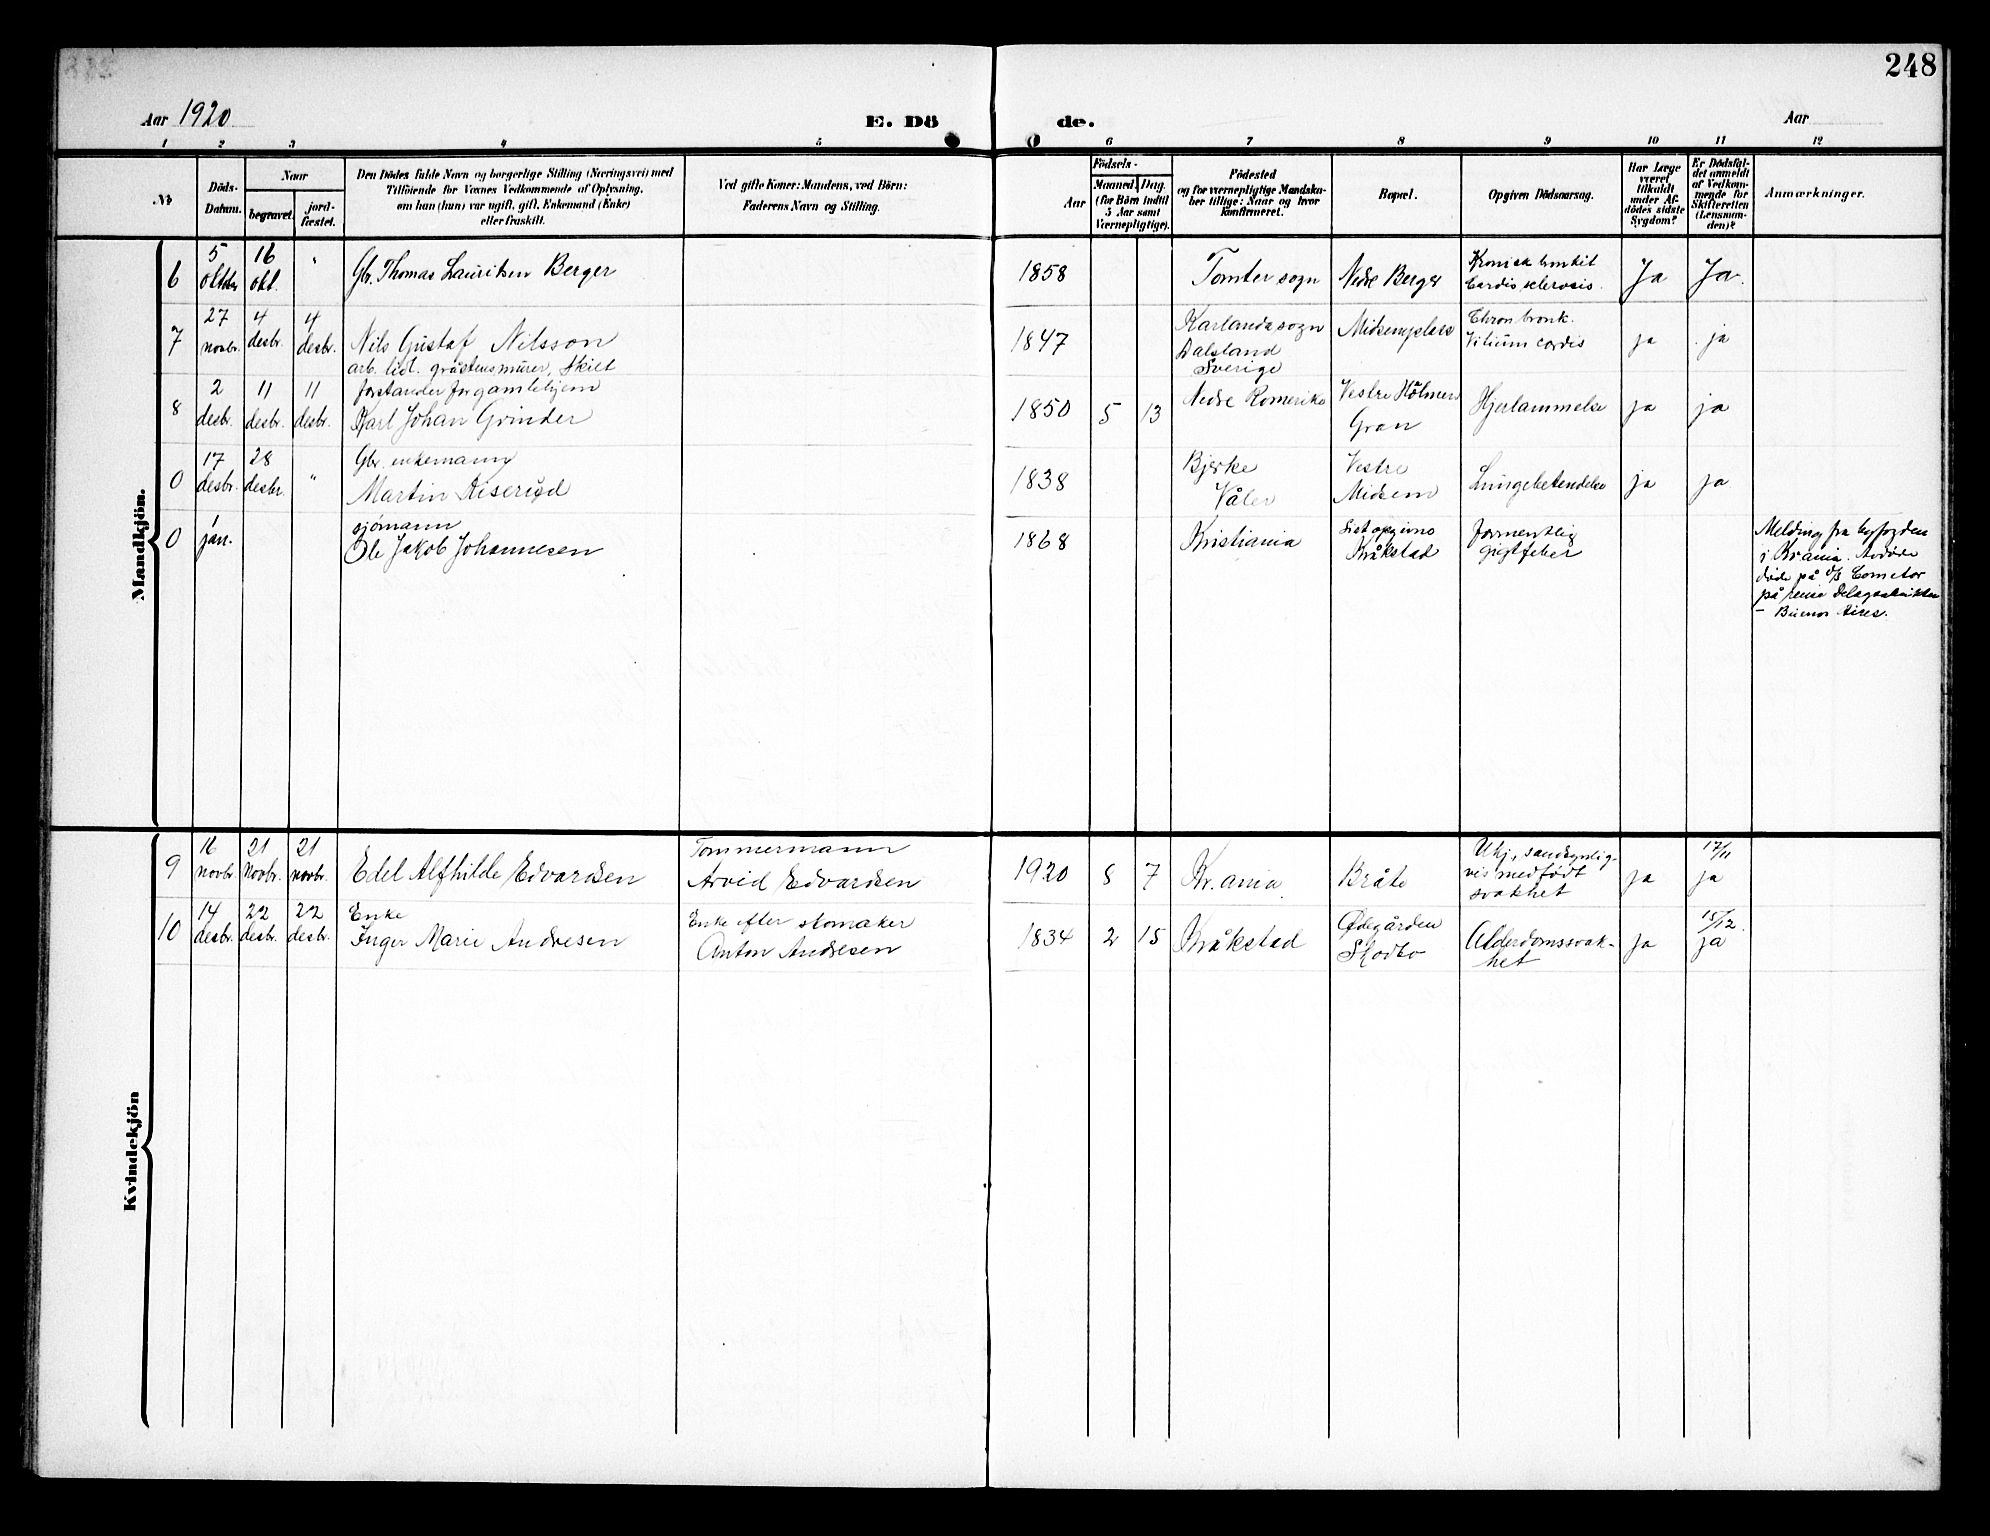 248
Aar 1920
E. Dö
de.
Aar
1 2 3 4 5 6 7 8 9 10 11 12
№
Döds-
Datum.
Naar
begravet.
jord-
fæstet.
Den Dödes fulde Navn og borgerlige Stilling (Næringsvei) med
Tilföiende for Voxnes Vedkommende af Oplysning,
om han (hun) var ugift, gift, Enkemand (Enke)
eller fraskilt.
Ved gifte Koner: Mandens, ved Börn:
Faderens Navn og Stilling.
Födsels-
Aar
Maaned. Dag.
(for Börn indtil
5 Aar samt
Værnepligtige).
Födested
og for værnepligtige Mandska-
ber tillige: Naar og hvor
konfirmeret.
Bopæl.
Opgiven Dödsaarsag.
Har Læge
været
tilkaldt
under Af-
dödes sidste
Sygdom?
Er Dödsfal-
det anmeldt
af Vedkom-
mende for
Skifteretten
(Lensman-
den)?
Anmærkninger.
Mandkjön.
6
5
16
"
Gbr. Thomas Lauritsen Berger
okt.
1858
Tomter sogn
Nedre Berger
Kronisk bronkit
Cardio sclerosis.
Ja
Ja.
7
27
novbr.
4
desbr.
4
desbr.
Nils Gustaf Nilsson
arb. lidt. gråstensmurer, skilt
1847
Karlanda sogn
Dalsland
Sverige
Chron bronk.
Vitium cordis
ja
ja
8
2
desbr.
11
desbr.
11
desbr.
forstander for gamlehjem
Karl Johan Grinder
1850
5
13
Nedre Romerike
Vestre Hölmen
Gran
Hjertelammelse
ja
ja
0
17
desbr.
28
desbr.
"
Gbr. enkemann
Martin Diserud
1838
Bjerke
Våler
Vestre
Midsem
Lungebetendelse
ja
ja
0
1
jan.
sjömann
Ole Jakob Johannesen
1868
Kristiania
Sist opgivne
Kråkstad
formentlig
gigtfeber
Melding fra byfogden
i Kr.ania. Avdöde
döde på D/S Cometor
på reise
– Buenos Aires.
Kvindekjön
9
16
novbr.
21
novbr.
21
novbr.
Edel Alfhilde Edvardsen
Tömmermann
Arvid Edvardsen
1920
8
7
Kr.ania
Bråte
Ukj., sandsynlig-
vis medfödt
svakhet
ja
17/11
ja
10
14
desbr.
22
desbr.
22
desbr.
Enke
Inger Marie Andresen
Enke efter skomaker
Anton Andresen
1834
2
15
Kråkstad
Ødegården
Skodbo
Alderdomssvak-
het
ja
15/12.
ja